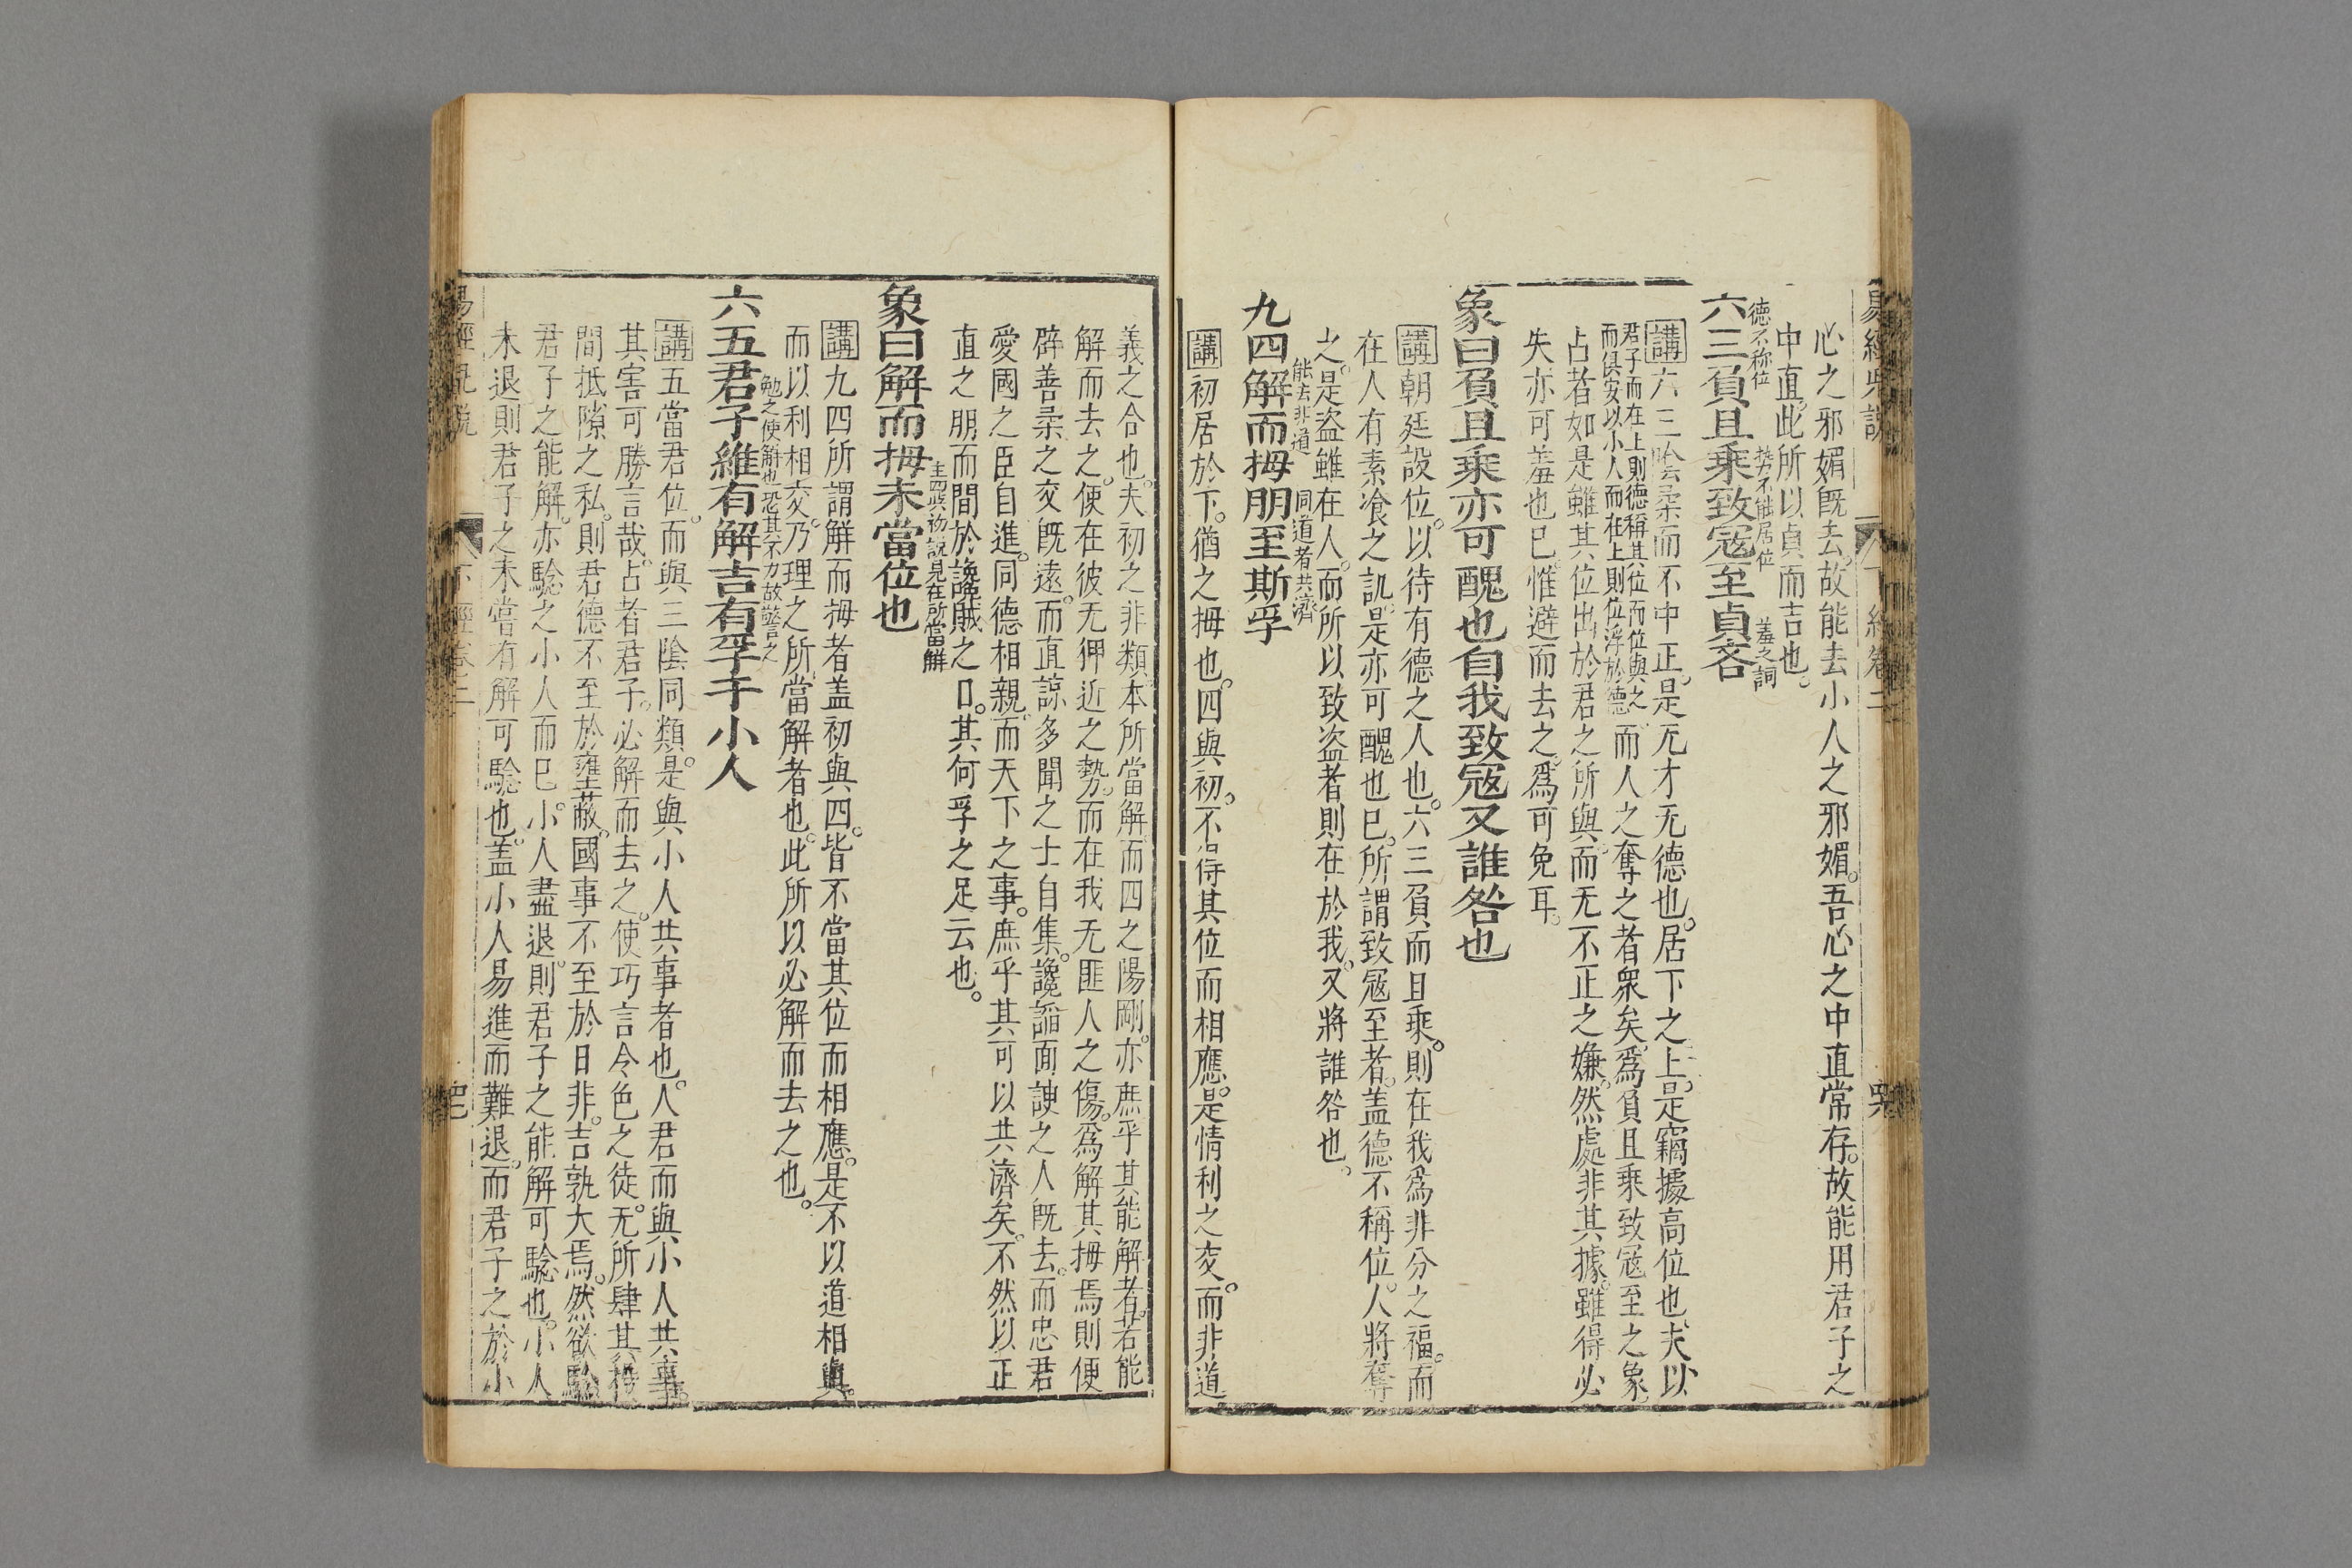 心之邪媚旣去。故能去小人之邪媚。吾心之中直常存。故能用君子之
中直。此所以貞而吉也。
德不称位 势不能居位 羞之詞
六三負且乘致寇至貞吝
講六三陰柔而不中正。是无才无德也。居下之上。是竊據高位也。夫以
君子而在上則德稱其位而位與之
而俱安以小人而在上則位浮於德
而人之奪之者衆矣。爲負且乘致寇至之象。
占者如是雖其位出於君之所與。而无不正之嫌。然處非其據。雖得必
失亦可羞也已。惟避而去之。爲可免耳。
象曰負且乘亦可醜也自我致寇又誰咎也
講朝廷設位。以待有德之人也。六三負而且乘。則在我爲非分之福。而
在人有素飡之譏。是亦可醜也已。所謂致寇至者。蓋德不稱位。人將奪
之。是盜雖在人。而所以致盜者則在於我。又將誰咎也。
能去非道 同道者共濟
九四解而拇朋至斯孚
講初居於下。猶之拇也。四與初。不得其位而相應。是情利之交。而非道
義之合也。夫初之非類。本所當解。而四之陽剛。亦庶乎其能解者。若能
解而去之。使在彼无狎近之勢。而在我无匪人之傷。爲解其拇焉則便
辟善柔之交旣遠。而直諒多聞之士自集。讒謟面諛之人旣去。而忠君
愛國之臣自進。同德相親。而天下之事。庶乎其可以共濟矣。不然以正
直之朋而間於讒賊之口。其何孚之足云也。
主四與初說見在所當解
象曰解而拇未當位也
講九四所謂解而拇者蓋初與四。皆不當其位而相應。是不以道相與。
而以利相交。乃理之所當解者也。此所以必解而去之也。
勉之使解也恐其不力故警言之
六五君子維有解吉有孚于小人
講五當君位。而與三陰同類。是與小人共事者也。人君而與小人共事。
其害可勝言哉。占者君子。必解而去之。使巧言令色之徒。无所肆其
間抵隙之私。則君德不至於壅蔽。國事不至於日非。吉孰大焉。然欲驗
君子之能解。亦驗之小人而已。小人盡退。則君子之能解可驗也。小人
未退則君子之未嘗有解可驗也。蓋小人易進而難退。而君子之於小